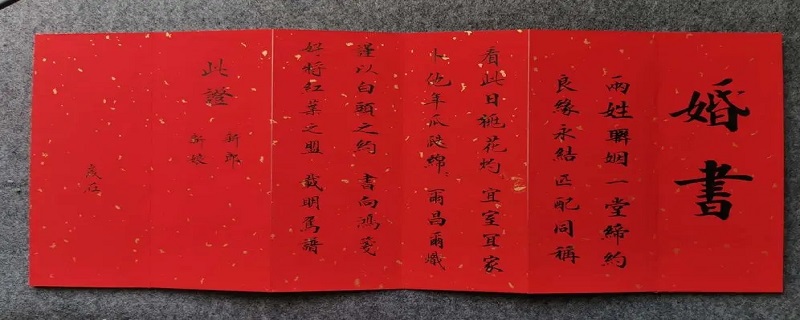 婚書
兩姓聯姻一堂締約
良緣永結匹配同稱
看此日桃花灼 宜室宜家
卜他年瓜瓞綿 爾昌爾熾
謹以白頭之約 書向鴻箋
好將紅葉之盟 載明鴛譜
此證
新郎
新娘